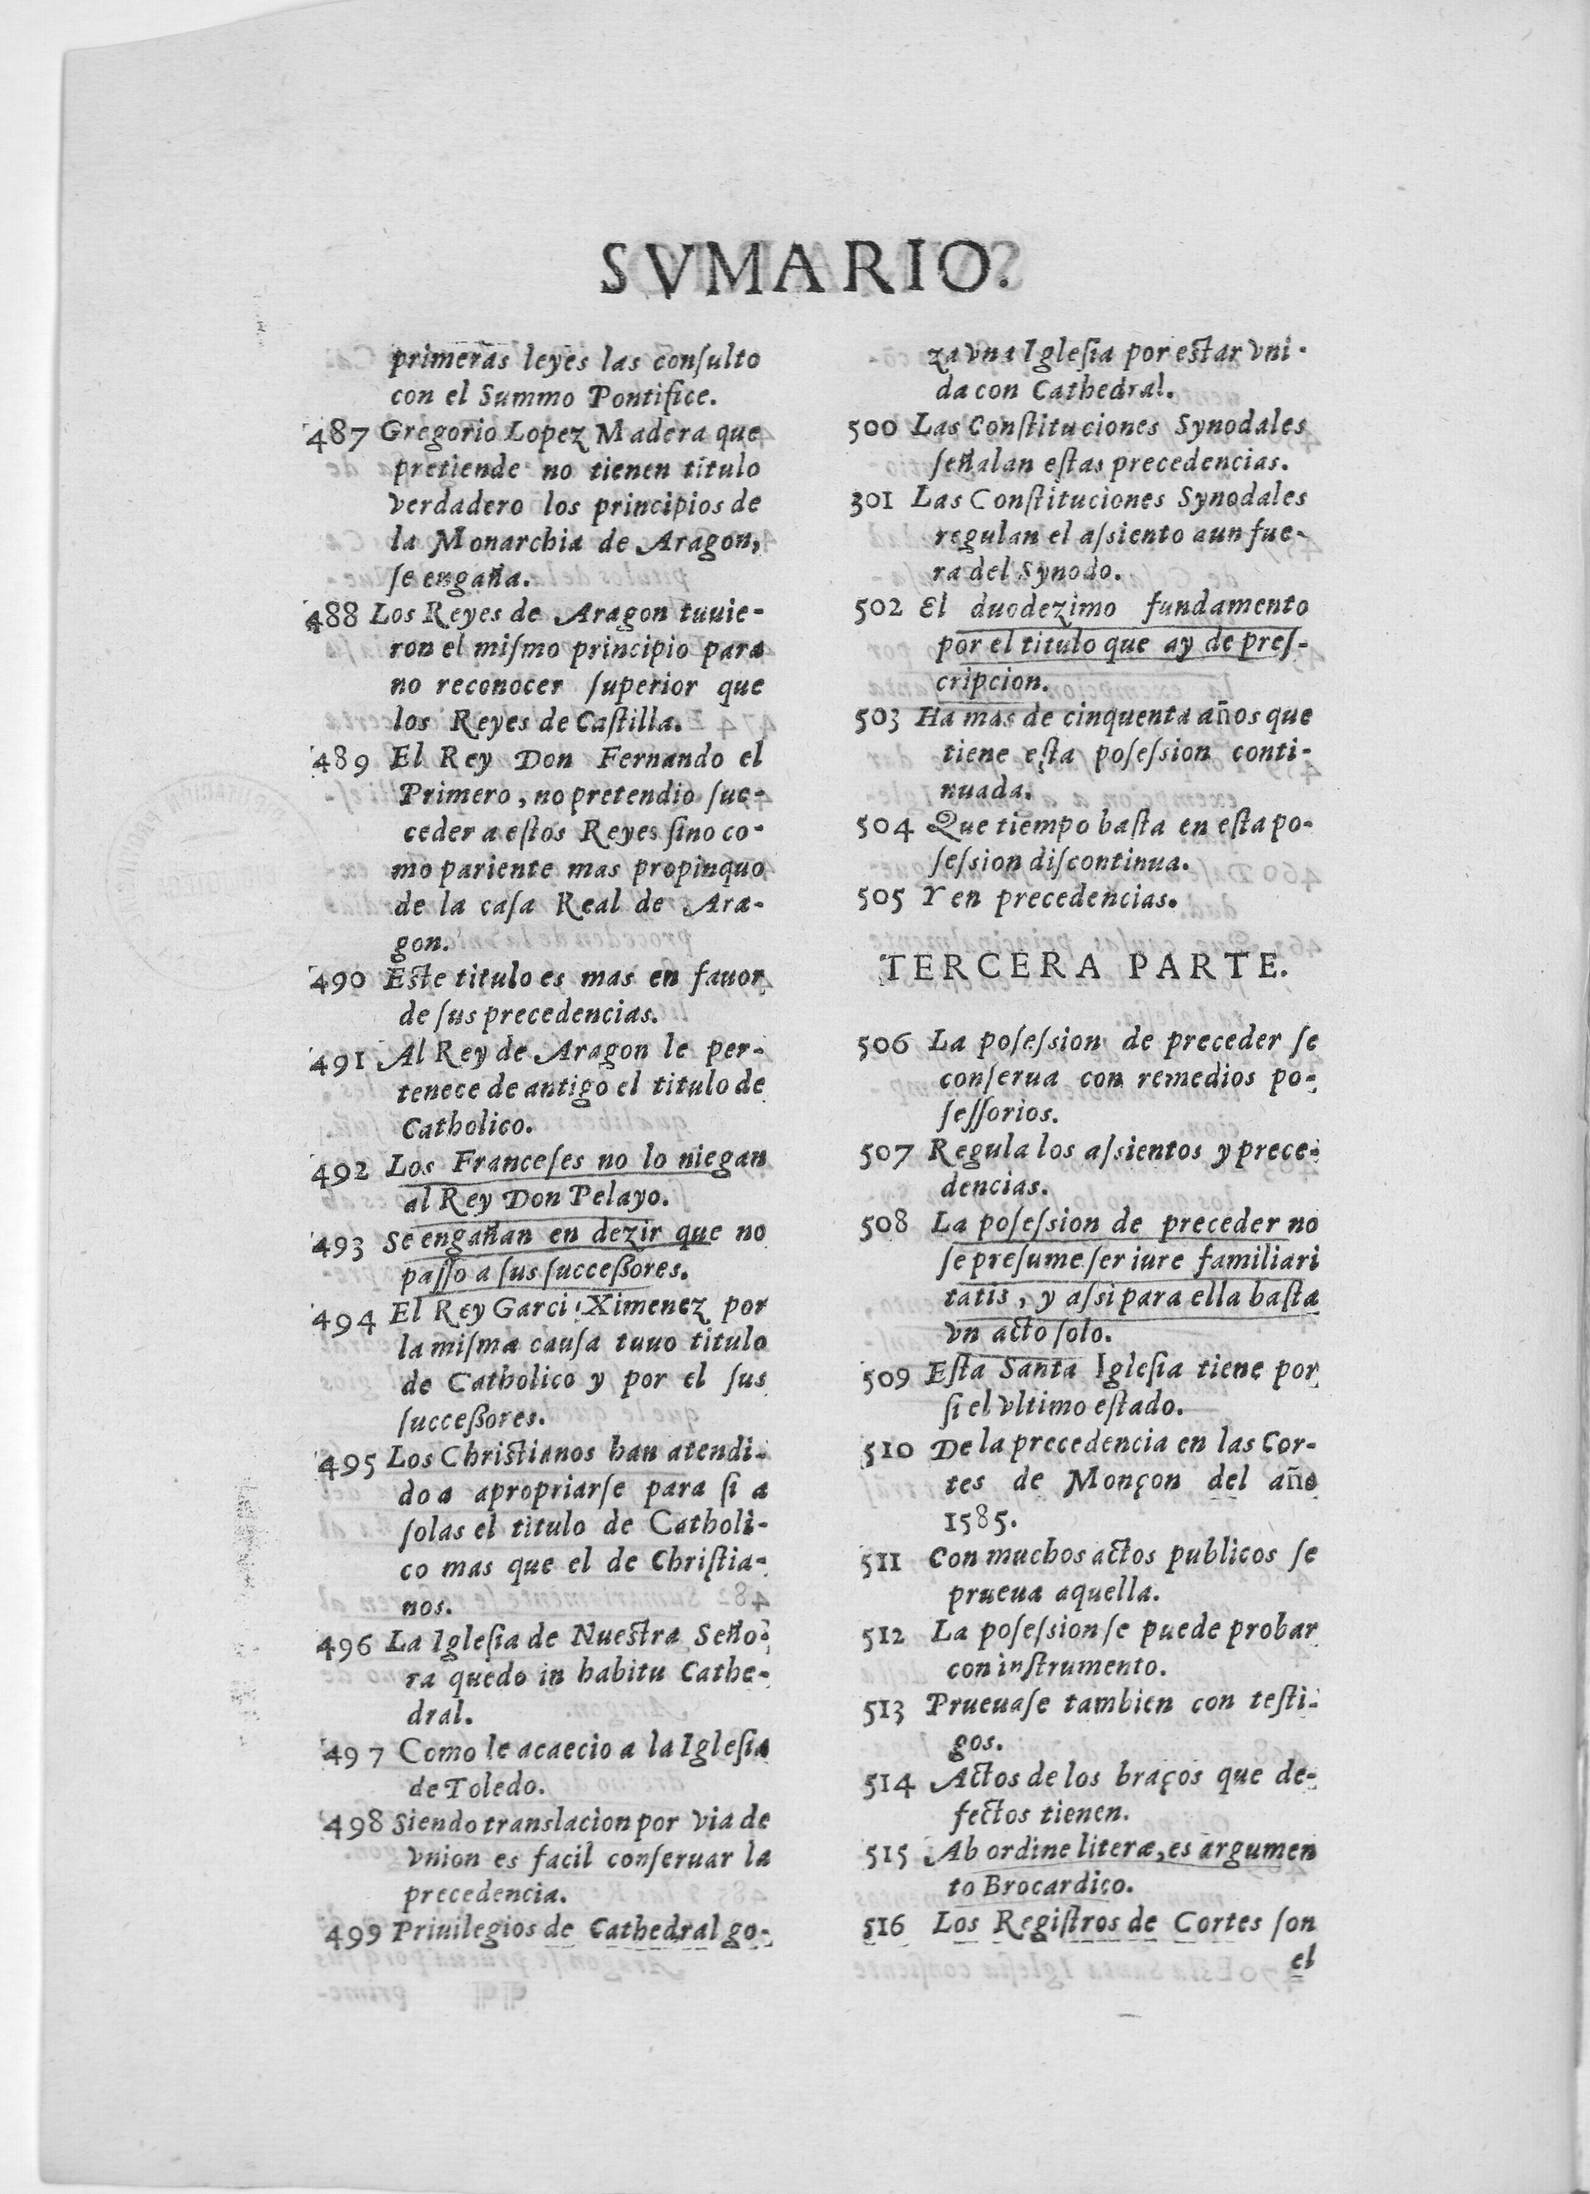 SVMARIO.
primeras leyes las conſulto
con el Summo Pontifice.
487 Gregorio Lopez Madera que
pretiende no tienen titulo
verdadero los principios de
la Monarchia de Aragon,
ſe engaña.
488 Los Reyes de Aragon tuuie-
ron el miſmo principio para
no reconocer ſuperior que
los Reyes de Caſtilla.
489 El Rey Don Fernando el
Primero, no pretendio ſuc-
ceder a eſtos Reyes ſino co-
mo pariente mas propinquo
de la caſa Real de Ara-
gon.
490 Este titulo es mas en fauor
de ſus precedencias.
491 Al Rey de Aragon le per-
tenece de antigo el titulo de
Catholico.
492 Los Franceſes no lo niegan
al Rey Don Pelayo.
493 Se engañan en dezir que no
paſſo a ſus ſucceßores.
494 El Rey Garci Ximenez por
la miſma cauſa tuuo titulo
de Catholico y por el ſus
ſucceßores.
495 Los Christianos han atendi-
do a apropriarſe para ſi a
ſolas el titulo de Catholi-
co mas que el de Chriſtia-
nos.
496 La Igleſia de Nuestra Seño-
ra quedo in habitu Cathe-
dral.
497 Como le acaecio a la Igleſia
de Toledo.
498 Siendo translacion por via de
vnion es facil conſeruar la
precedencia.
499 Priuilegios de Cathedral go-
za vna Igleſia por estar vni-
da con Cathedral.
500 Las Conſtituciones Synodales
ſeñalan eſtas precedencias.
301 Las Conſtituciones Synodales
regulan el aſsiento aun fue-
ra del Synodo.
502 El duodezimo fundamento
por el titulo que ay de preſ-
cripcion.
503 Ha mas de cinquenta años que
tiene eſta poſeſsion conti-
nuada.
504 Que tiempo baſta en eſta po-
ſeſsion diſcontinua.
505 Y en precedencias.
TERCERA PARTE.
506 La poſeſsion de preceder ſe
conſerua con remedios po-
ſeſſorios.
507 Regula los aſsientos y prece-
dencias.
508 La poſeſsion de preceder no
ſe preſume ſer iure familiari
tatis, y aſsi para ella baſta
vn acto ſolo.
509 Eſta Santa Igleſia tiene por
ſi el vltimo eſtado.
510 De la precedencia en las Cor-
tes de Monçon del año
1585.
511 Con muchos actos publicos ſe
prueua aquella.
512 La poſeſsion ſe puede probar
con inſtrumento.
513 Prueuaſe tambien con teſti-
gos.
514 Actos de los braços que de-
fectos tienen.
515 Ab ordine literæ, es argumen
to Brocardico.
516 Los Regiſtros de Cortes ſon
el